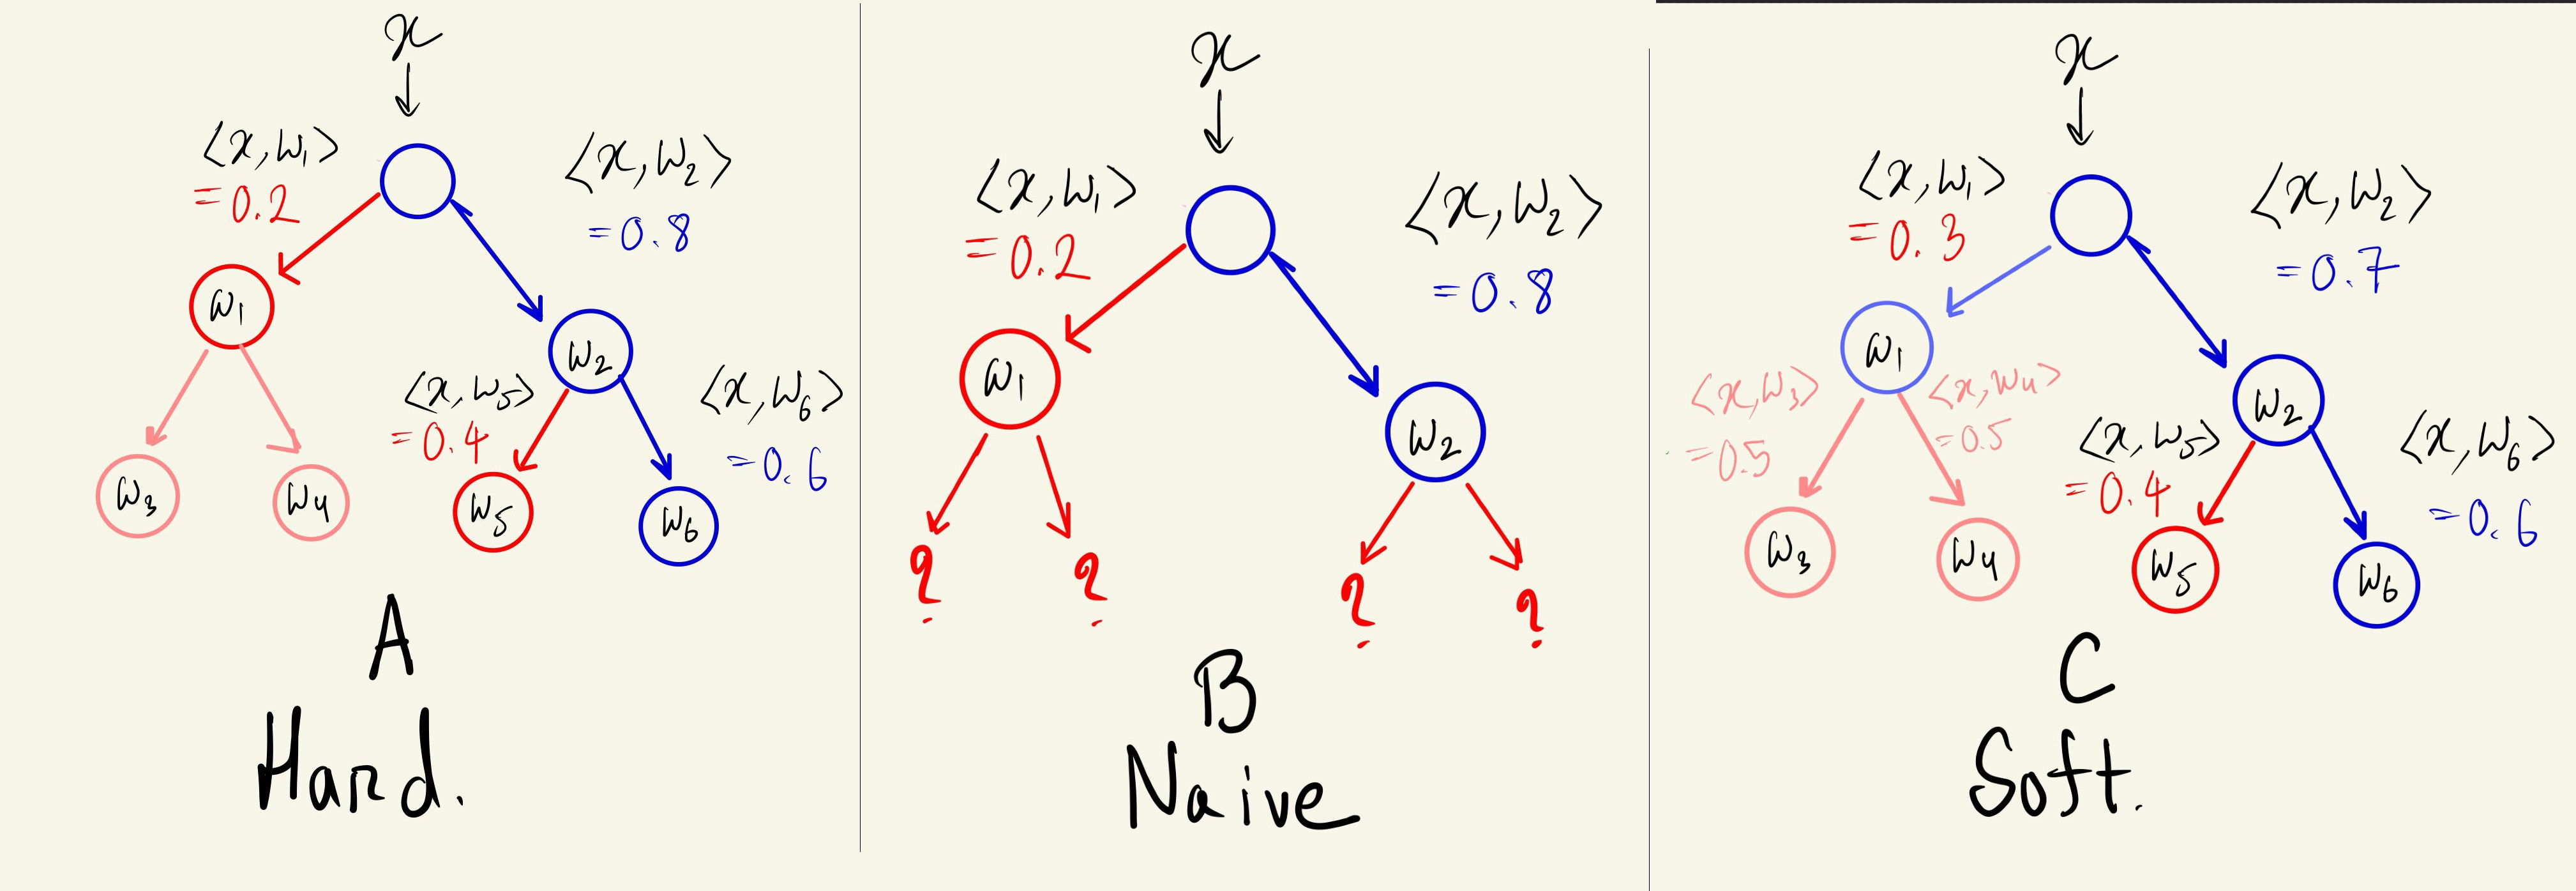 x
⟨x, w₁⟩
= 0.2
⟨x, w₂⟩
= 0.8
w₁
w₂
⟨x, w₅⟩
= 0.4
⟨x, w₆⟩
= 0.6
w₃
w₄
w₅
w₆
A
Hard.
x
⟨x, w₁⟩
= 0.2
⟨x, w₂⟩
= 0.8
w₁
w₂
? ? ? ?
B
Naive
x
⟨x, w₁⟩
= 0.3
⟨x, w₂⟩
= 0.7
w₁
w₂
⟨x, w₃⟩
= 0.5
⟨x, w₄⟩
= 0.5
⟨x, w₅⟩
= 0.4
⟨x, w₆⟩
= 0.6
w₃
w₄
w₅
w₆
C
Soft.